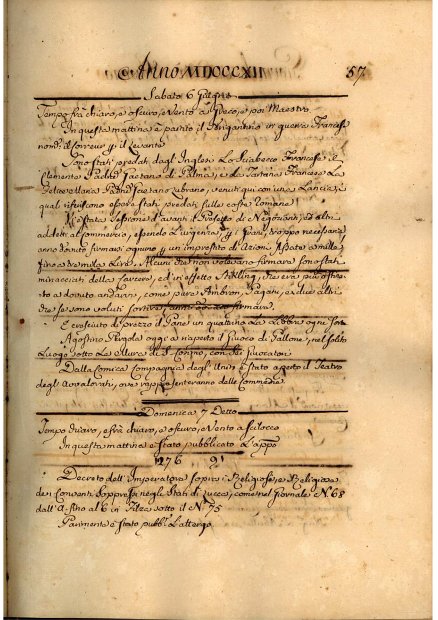 Anno MDCCCXII 57
Sabato 6 Giugno
Tempo frà chiaro, e oscuro, e Vento a Greco, e poi Maestro
In questa mattina è partito il Brigantino in guerra Francese
nom. il Correur p il Levante
Sono stati predati dagl' Inglesi Lo Sciabecco Francese il
Clemente Padrõ Gaetano di Palma, e da Tartana Francese La
Padrõ Gaetano Zubrano, venuti qui con una Lancia, i
quali riferiscono essere stati predati sulle coste Romane
stata Sessione d'avanti il Prefetto di Negozianti, ed altri
addetti al commercio, essendo L'urgenza
anno dovuto firmarsi ognuno p un imprestito di Azioni
fino a tremila Lire. Alcuni che non volevano firmare sono stati
minacciati della Carcere, ed in effetto
come pure Ambron, Pagani, e due altri
che se sono voluti sortire, anno dovuto firmare.
È cresciuto di prezzo il Pane un quattrino La Libbra ogni sorte
Agostino Pergola oggi a riaperto il Giuoco di Pallone, nel solito
Luogo sotto Le Mura di S. Cosimo, con Sei Giuocatori
Dalla Comica Compagnia degl' Uniti è stato aperto il Teatro
degli Avvalorati, ove rappresenteranno delle Commedie
Domenica 7 Detto
Tempo chiaro, e frà chiaro, e oscuro, e Vento a Scilocco
In questa mattina è stato pubblicato L'appo
1276 91
Decreto dell' Imperatore sopra i Religiosi, e Religiose
dei Conventi Soppressi negli Stati di Lucca, come nel Giornale N. 68
dall' a. fino al 6 in Filza sotto il N. 75
Parimente è stato pubb. L'altergo